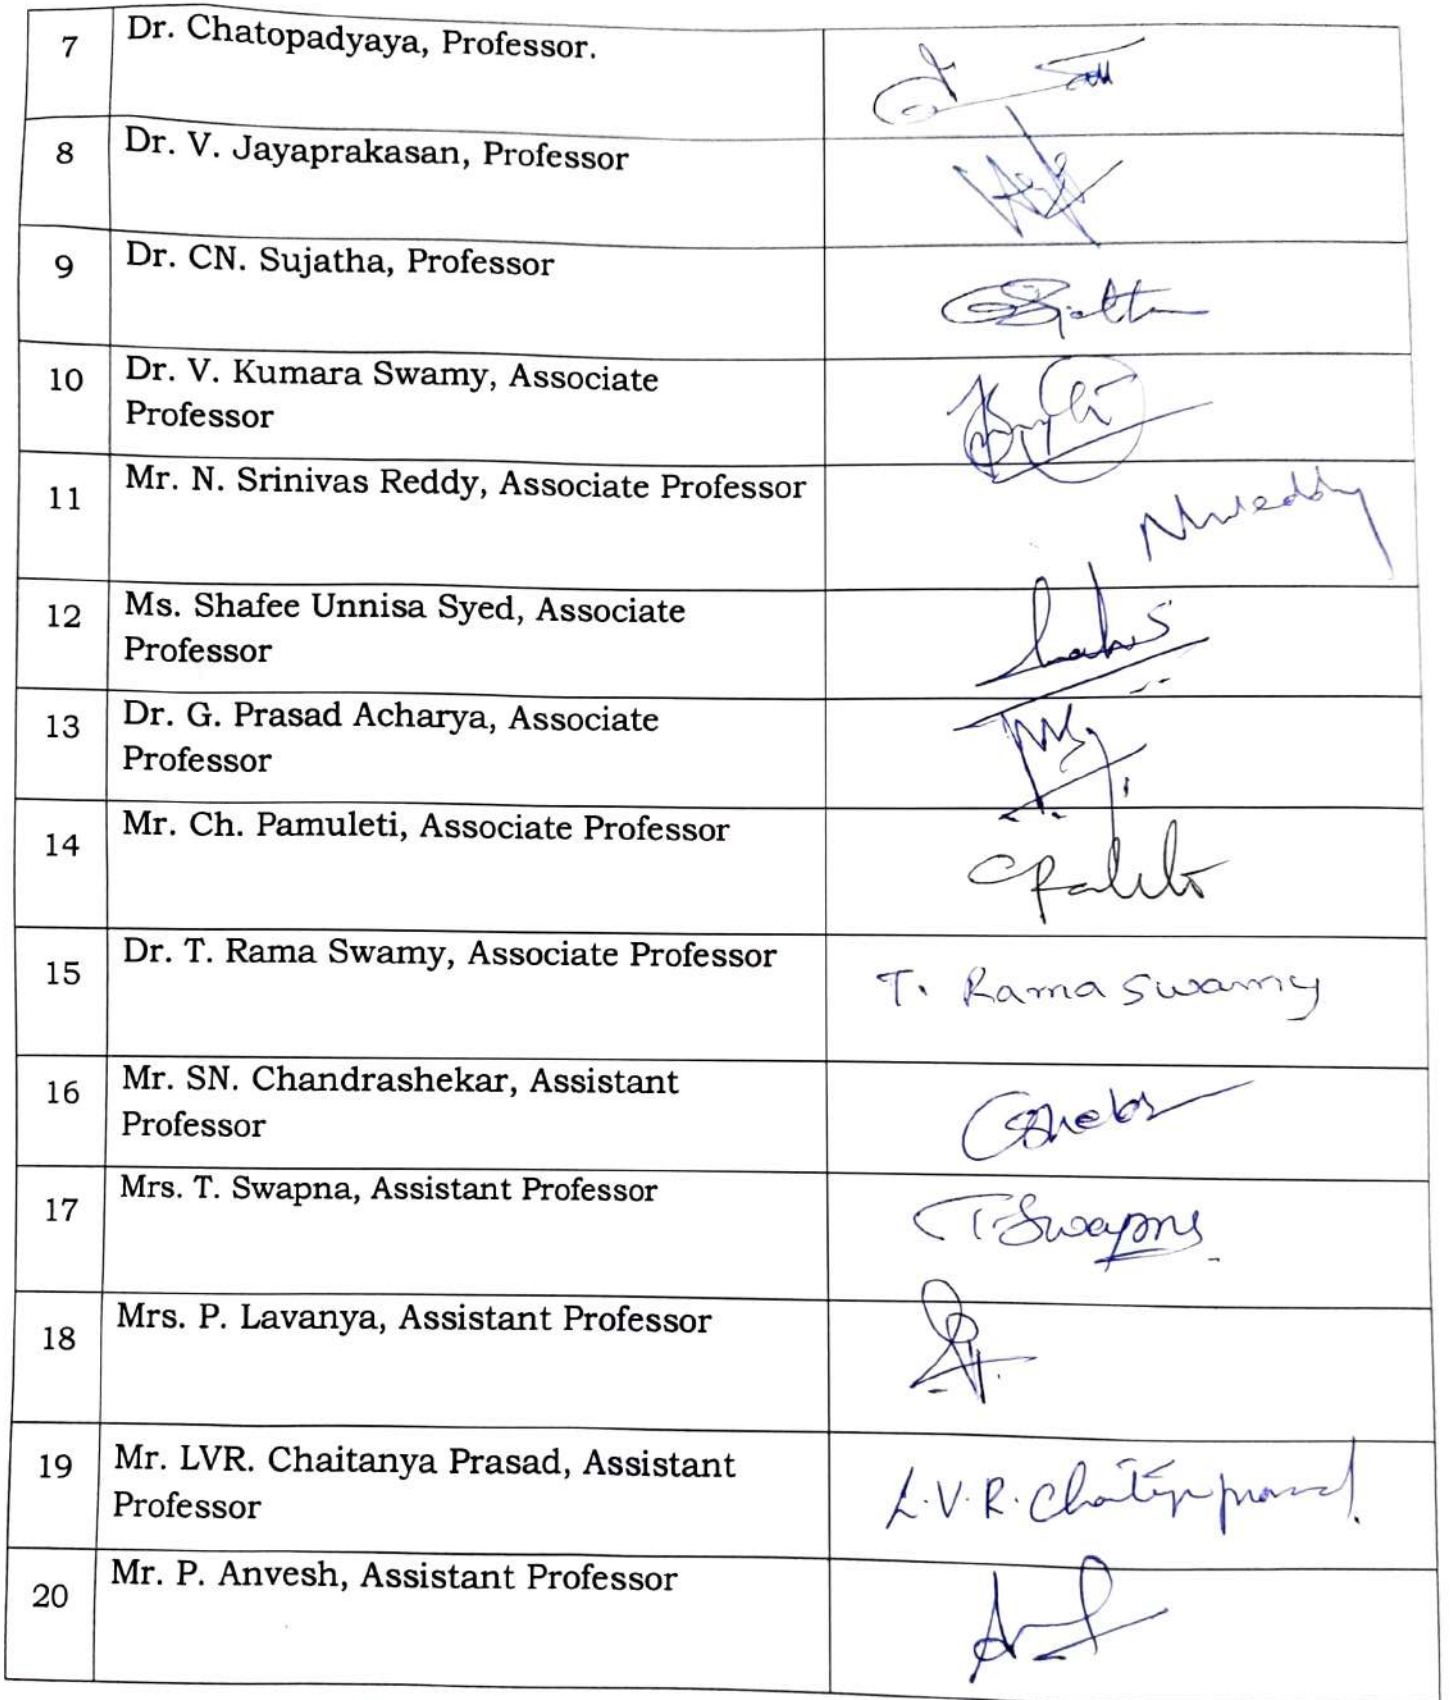 7 Dr. Chatopadyaya, Professor.
8 Dr. V. Jayaprakasan, Professor
9 Dr. CN. Sujatha, Professor
10 Dr. V. Kumara Swamy, Associate
Professor
11 Mr. N. Srinivas Reddy, Associate Professor
12 Ms. Shafee Unnisa Syed, Associate
Professor
13 Dr. G. Prasad Acharya, Associate
Professor
14 Mr. Ch. Pamuleti, Associate Professor
15 Dr. T. Rama Swamy, Associate Professor T. Rama Swamy
16 Mr. SN. Chandrashekar, Assistant
Professor
17 Mrs. T. Swapna, Assistant Professor T Swapna
18 Mrs. P. Lavanya, Assistant Professor
19 Mr. LVR. Chaitanya Prasad, Assistant
Professor L.V.R.
20 Mr. P. Anvesh, Assistant Professor